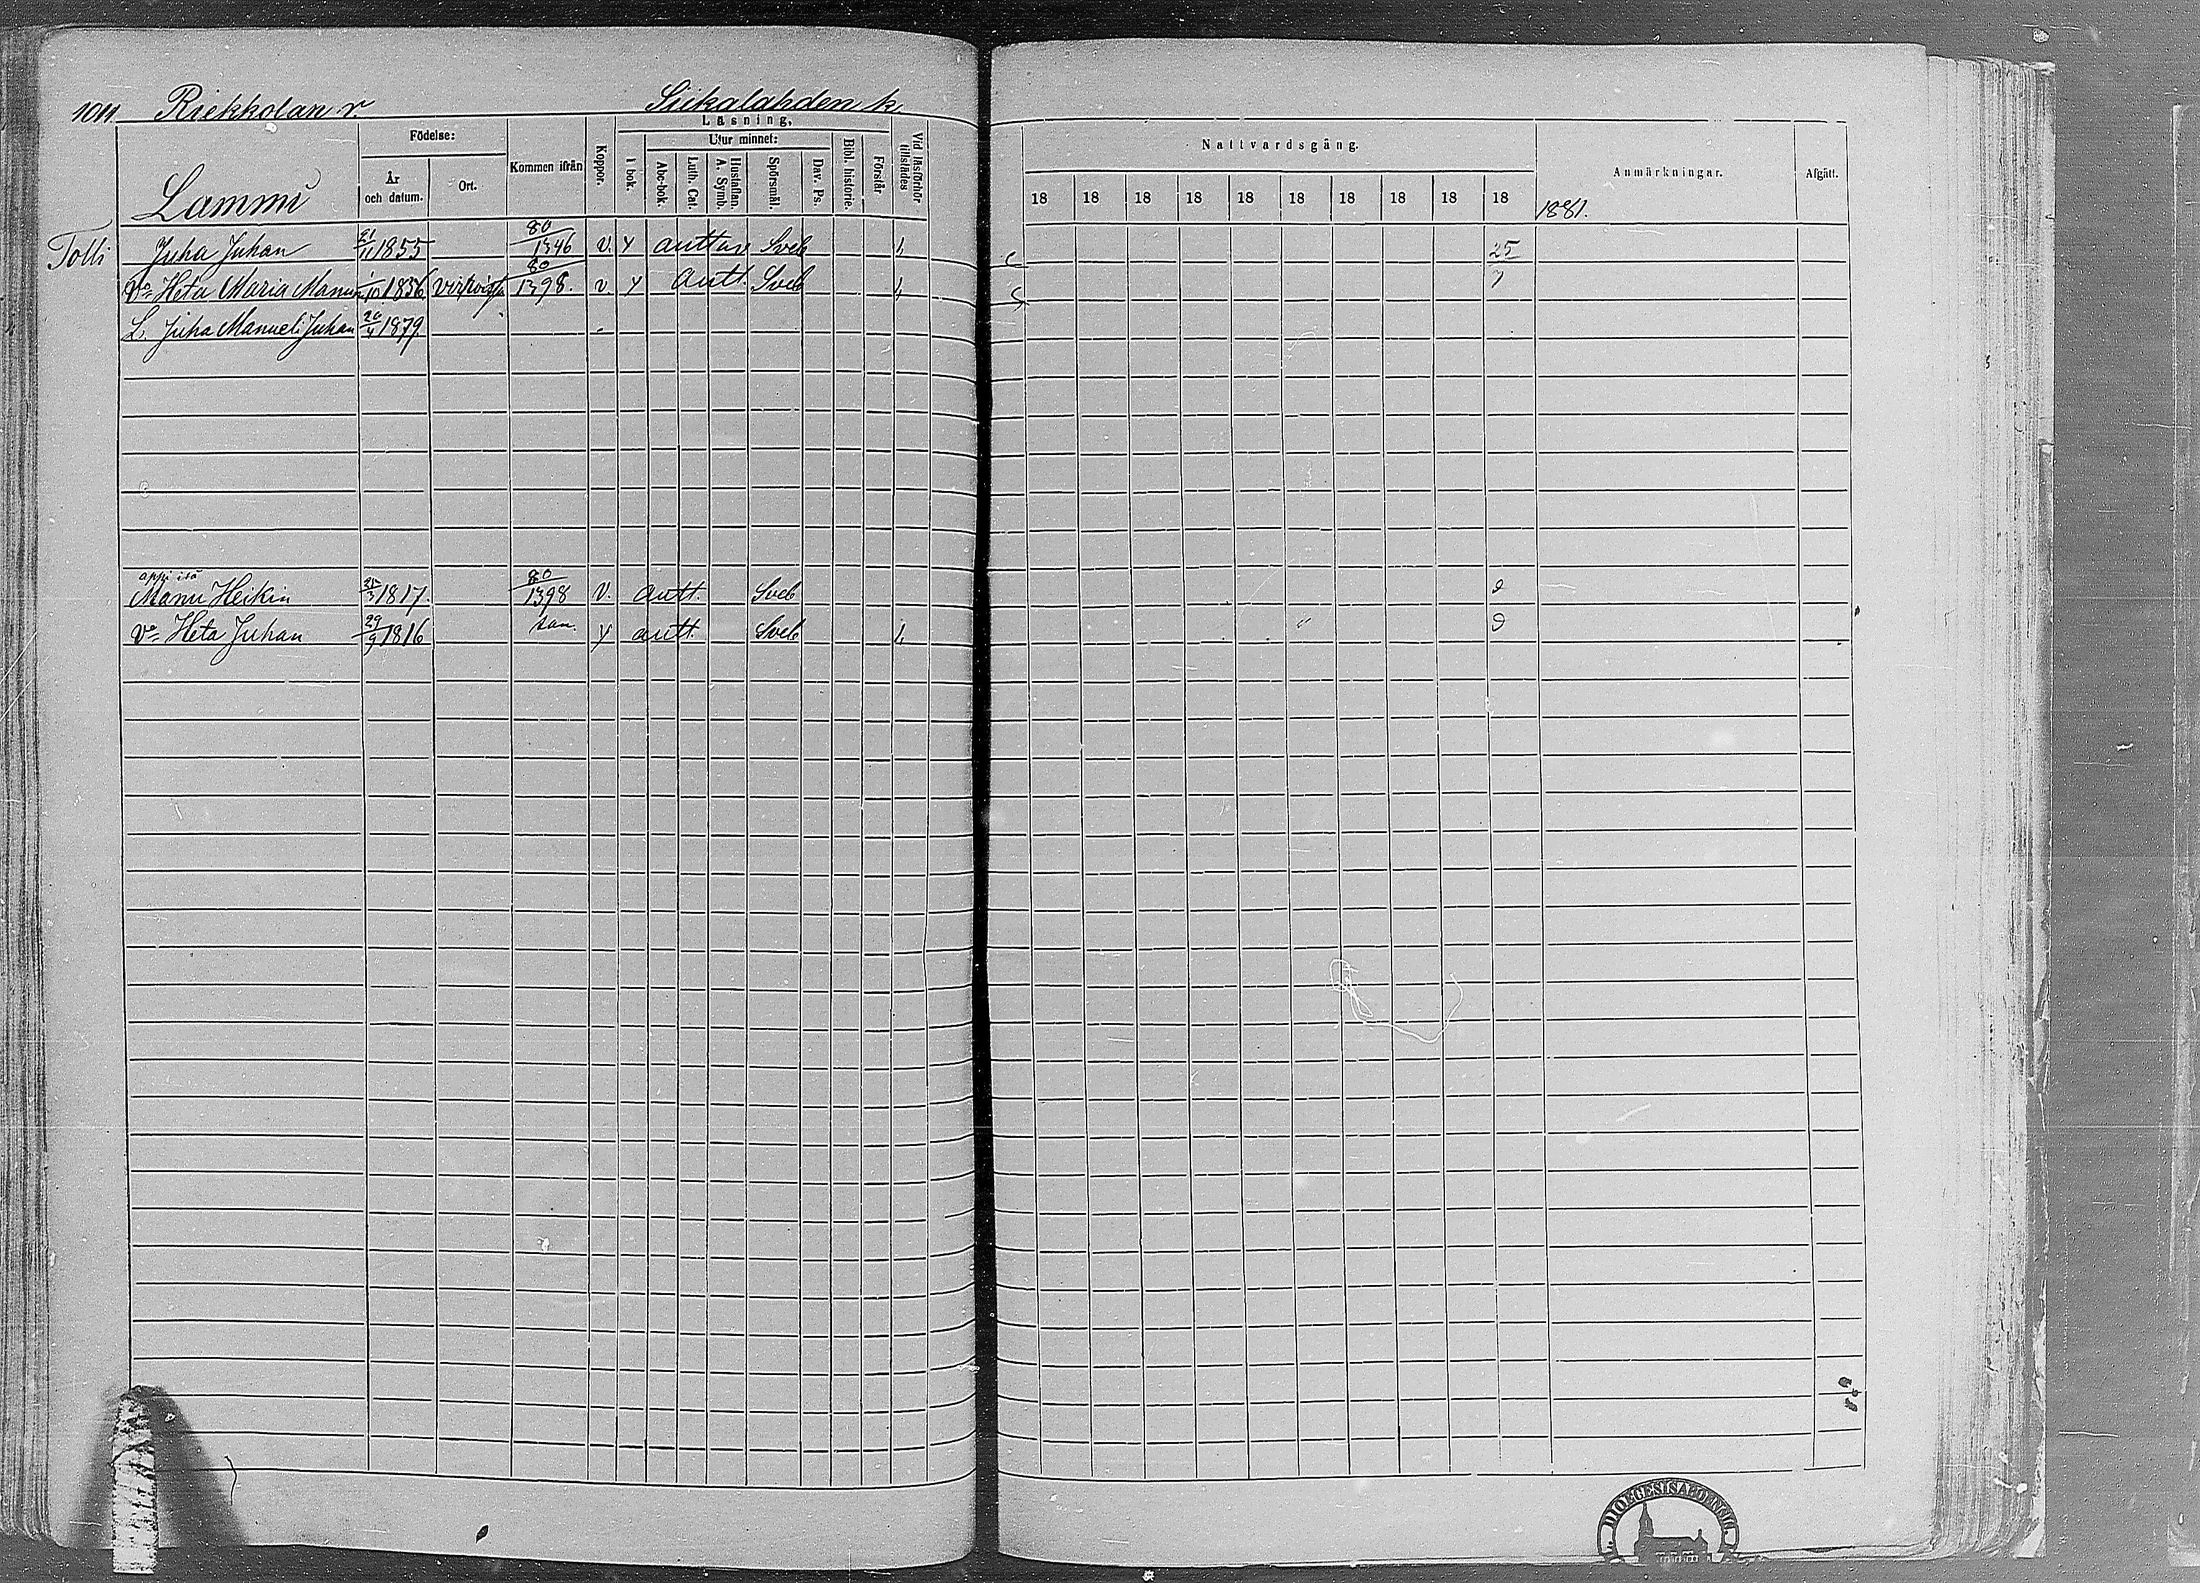 1011. Riekkolan r. Siikalahden k.
Lammi
Födelse:
År och datum.
Ort.
Kommen ifrån
Koppor.
Läsning.
I bok.
Utur minnet:
Abc-bok.
Luth. Cat.
Hustaflan. A. Symb.
Spörsmål.
Dav. Ps.
Bibl. historie.
Förstår
Vid läsförhör tillstädes
Nattvardsgång.
18 18 18 18 18 18 18 18 18 18
Anmärkningar.
1881.
Afgått.
Tolli Juha Juhan 21/11 1855 80/1346 v. y auttav Sveb 25
Vo Heta Maria Manun 1/10 1856 80/1398. v. y Autt. Sveb
L. Juha Manueli Juhan 20/4 1879.
appi isä
Manu Heikin 1817. 80/1398 v. autt. Sveb
Vo Heta Juhan 29/9 1816 san. y autt. Sveb
DIOECESIS ABOENSIS